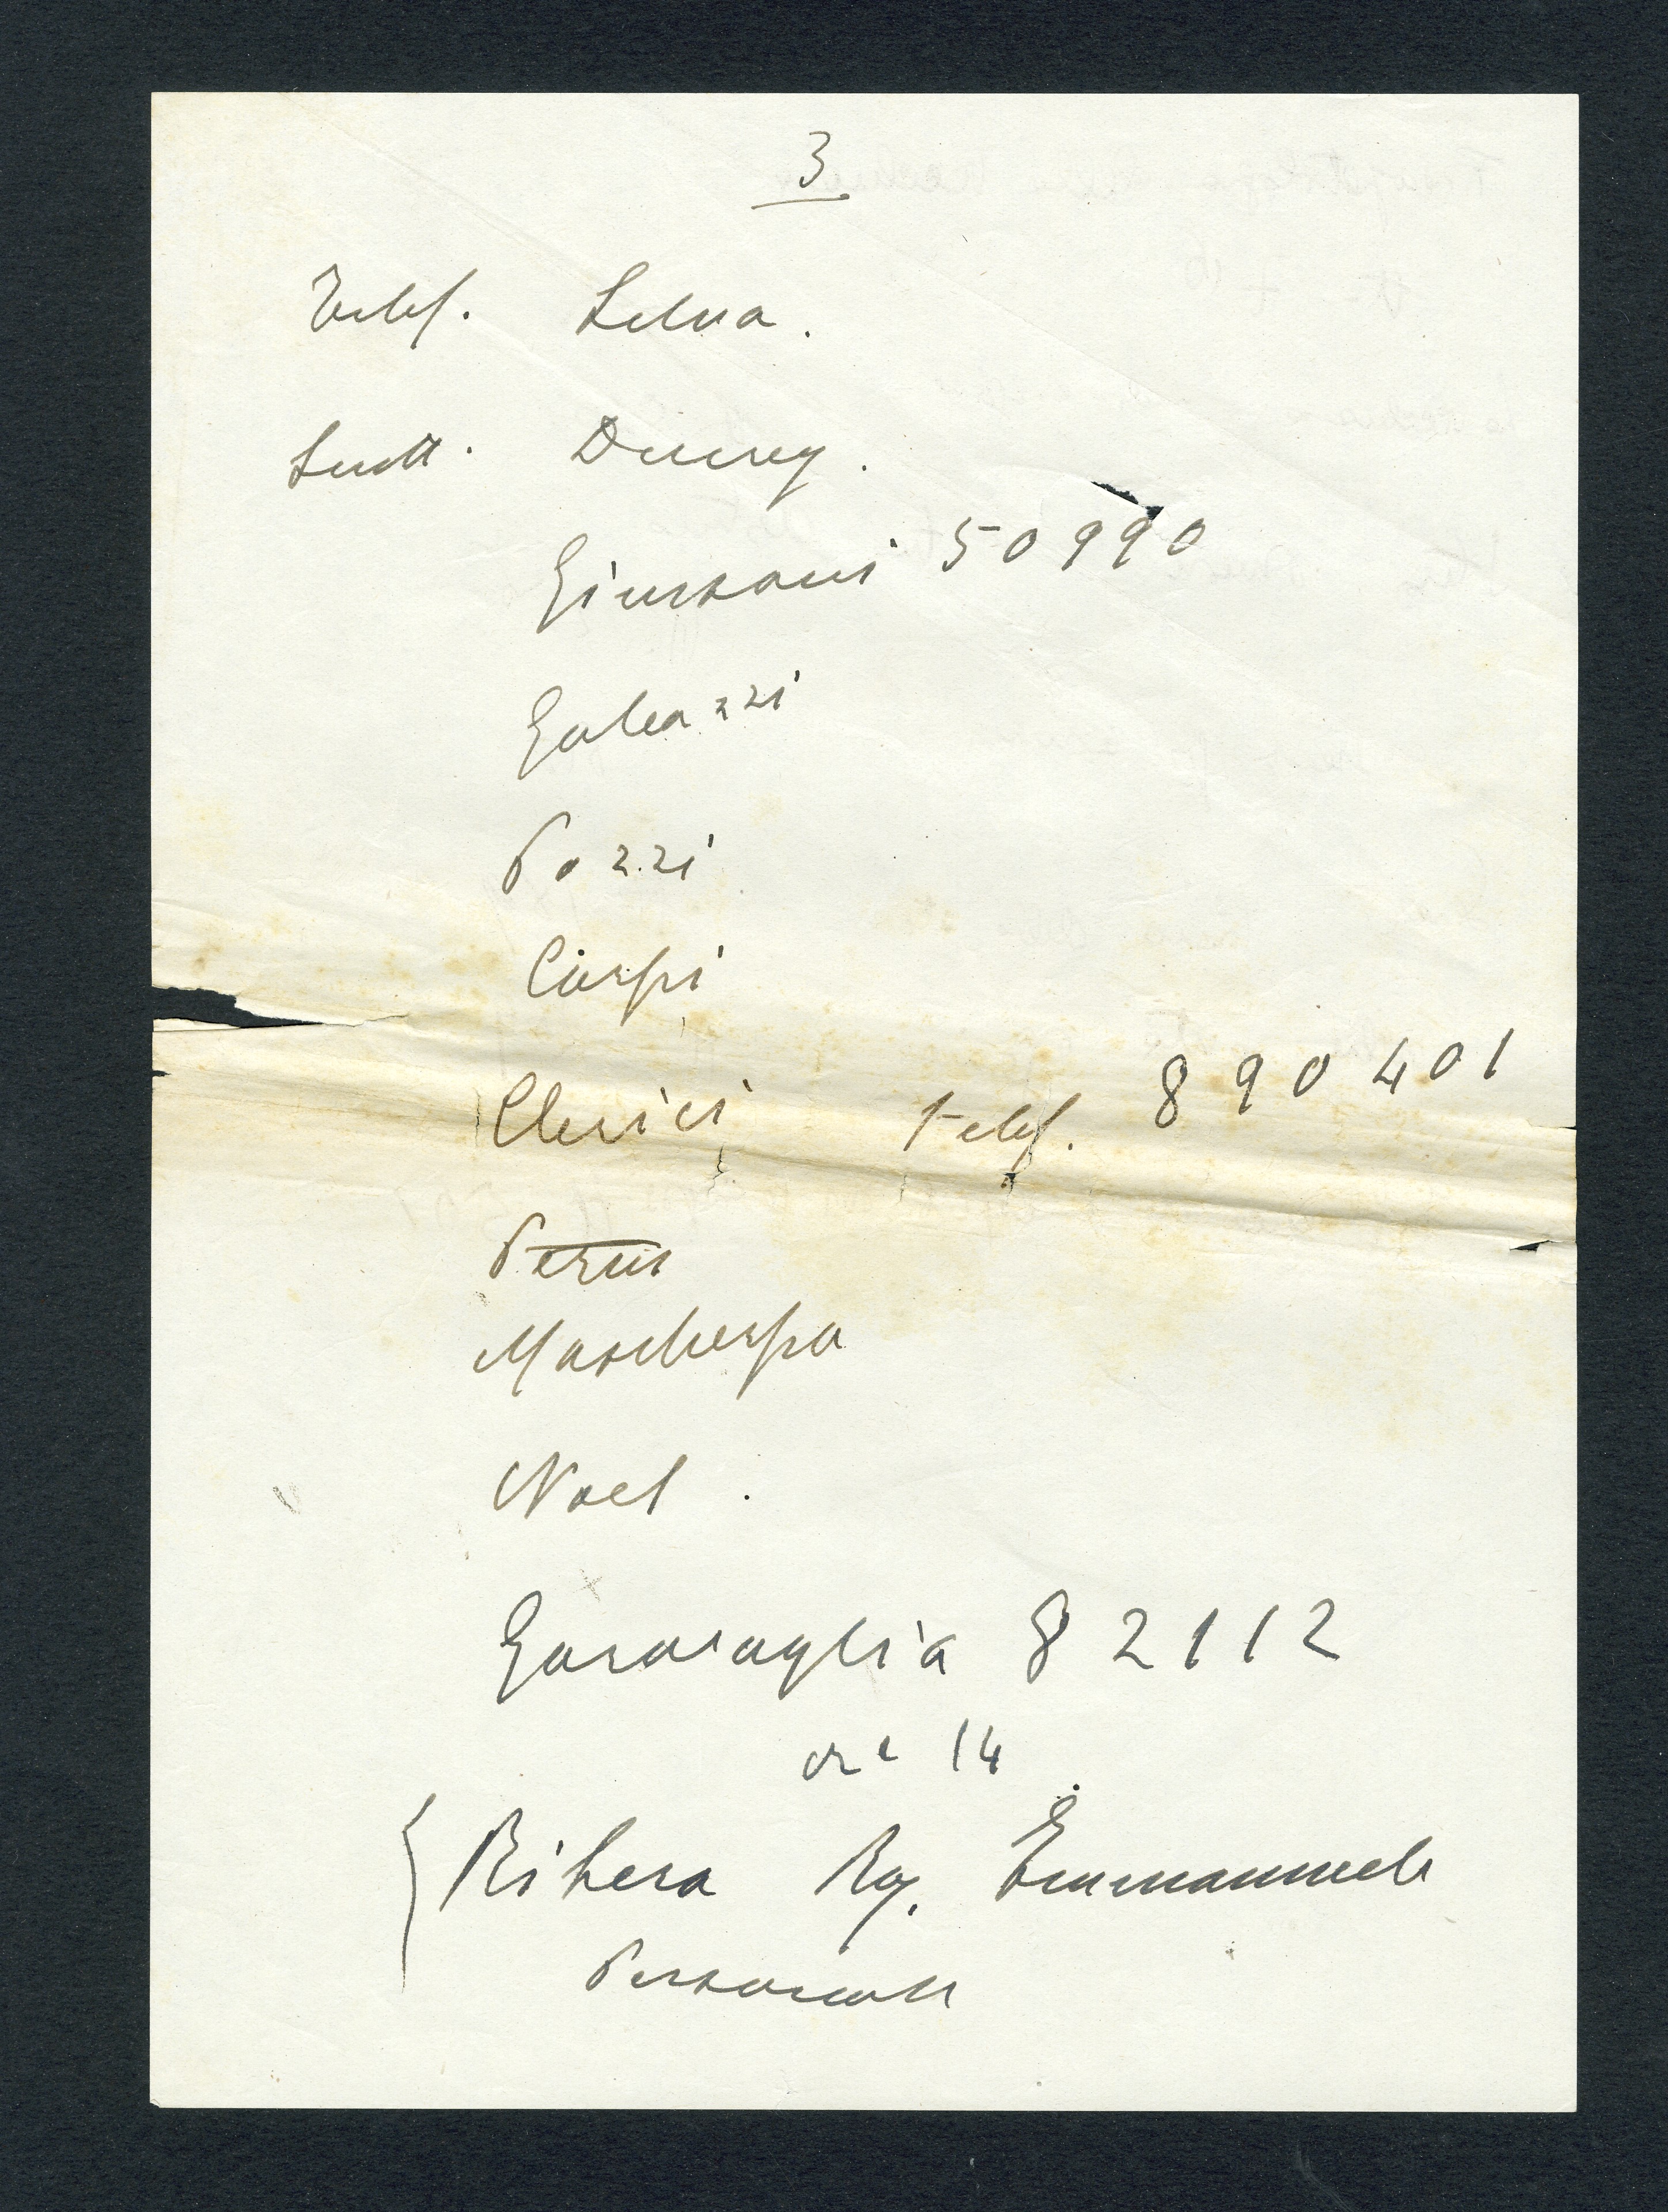 3
Telef. Selva.
Scritt.
Giussani 50990
Galeazzi
Pozzi
Carpi
Clerici telef. 890401
Mascherpa
Noel.
Garavaglia 82112
ore 14
Ribera Rag. Emmanuele
Personale